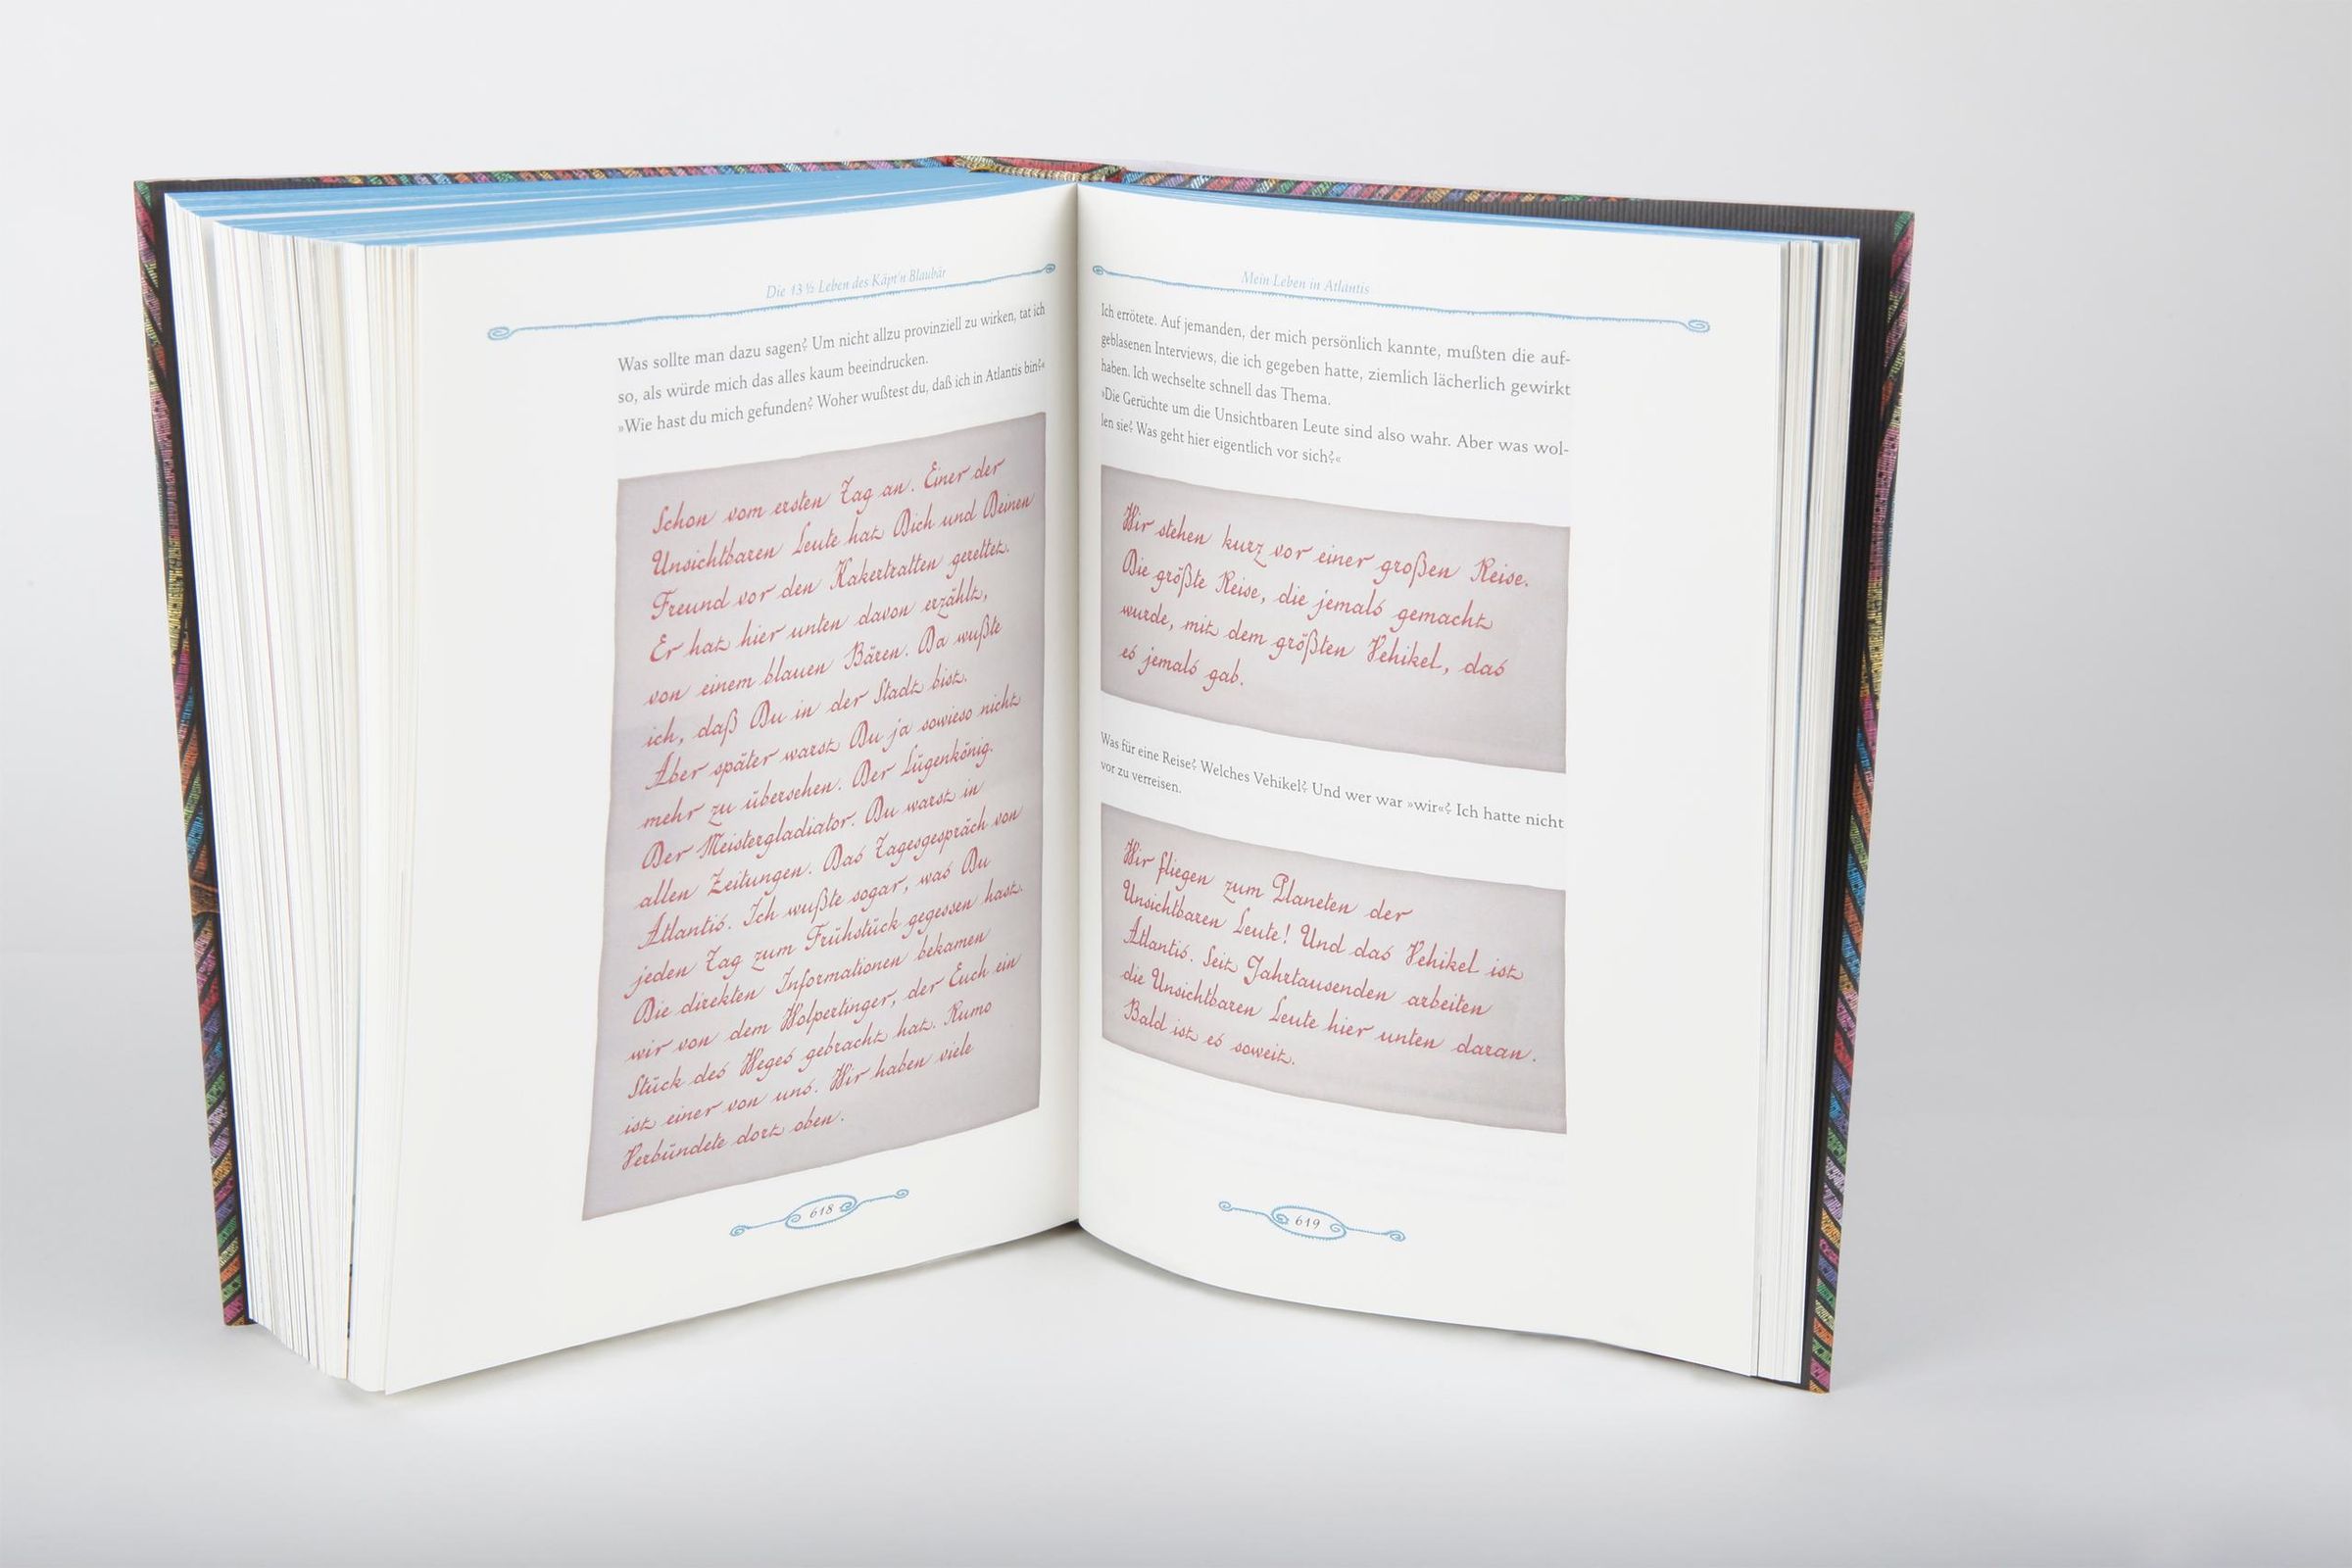 Die 13 ½ Leben des Käpt'n Blaubär
Was sollte man dazu sagen? Um nicht allzu provinziell zu wirken, tat ich
so, als würde mich das alles kaum beeindrucken.
»Wie hast du mich gefunden? Woher wußtest du, daß ich in Atlantis bin?«
Schon vom ersten Tag an. Einer der
Unsichtbaren Leute hat Dich und Deinen
Freund vor den Kakertratten gerettet.
Er hat hier unten davon erzählt,
von einem blauen Bären. Da wußte
ich, daß Du in der Stadt bist.
Aber später warst Du ja sowieso nicht
mehr zu übersehen. Der Lügenkönig.
Der Meistergladiator. Du warst in
allen Zeitungen. Das Tagesgespräch von
Atlantis. Ich wußte sogar, was Du
jeden Tag zum Frühstück gegessen hast.
Die direkten Informationen bekamen
wir von dem Wolpertinger, der Euch ein
Stück des Weges gebracht hat. Rumo
ist einer von uns. Wir haben viele
Verbündete dort oben.
618
Mein Leben in Atlantis
Ich errötete. Auf jemanden, der mich persönlich kannte, mußten die auf-
geblasenen Interviews, die ich gegeben hatte, ziemlich lächerlich gewirkt
haben. Ich wechselte schnell das Thema.
»Die Gerüchte um die Unsichtbaren Leute sind also wahr. Aber was wol-
len sie? Was geht hier eigentlich vor sich?«
Wir stehen kurz vor einer großen Reise.
Die größte Reise, die jemals gemacht
wurde, mit dem größten Vehikel, das
es jemals gab.
Was für eine Reise? Welches Vehikel? Und wer war »wir«? Ich hatte nicht
vor zu verreisen.
Wir fliegen zum Planeten der
Unsichtbaren Leute! Und das Vehikel ist
Atlantis. Seit Jahrtausenden arbeiten
die Unsichtbaren Leute hier unten daran.
Bald ist es soweit.
619